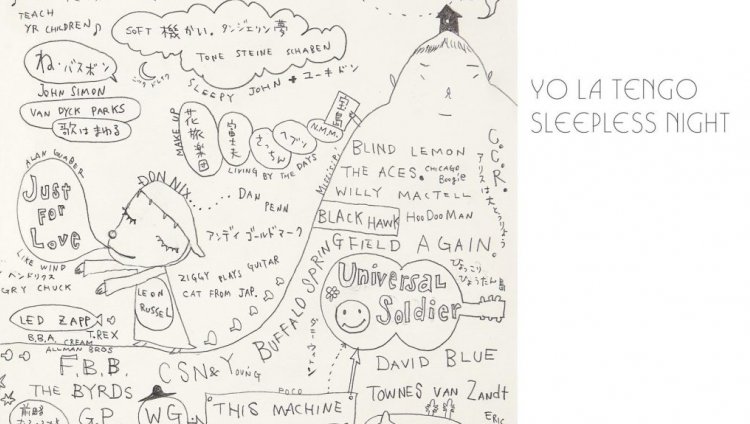 TEACH
YR CHILDREN
SOFT 機かい。タンジェリン夢
TONE STEINE SCHABEN
SLEEPY JOHN + ユーキドン
ね・バスボン
JOHN SIMON
VAN DYCK PARKS
歌はまわる
MAKE UP
花旅楽団
富士夫
さっちん
ヘブン
N.M.M.
宝島
LIVING BY THE DAYS
YO LA TENGO
SLEEPLESS NIGHT
BLIND LEMON
THE ACES. CHICAGO Boogie
WILLY MACTELL
BLACK HAWK HooDooMAN
C.C.R.
アリスは大とうりょう。
ALAN
Just
For
Love
DON NIX
DAN
PENN
アンディ ゴールドマーク
LIKE WIND
ヘンドリクス
GRY CHUCK
ZIGGY PLAYS GUITAR
CAT FROM JAP.
LEON
RUSSEL
BUFFALO SPRINGFIELD AGAIN.
ひょっこり
ひょうたん島
Universal
Soldier
LED ZAPP
B.B.A. CREAM T.REX
ALLMAN BROS
F.B.B.
CSN & Young
ダニーウィットン
DAVID BLUE
THE BYRDS
POCO
TOWNES VAN Zandt
G.P.
WG
THIS MACHINE
ERIC